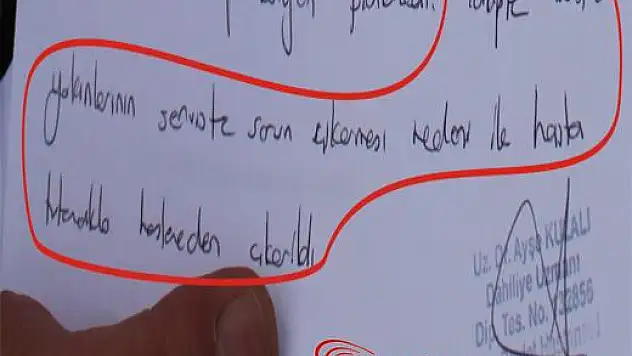 yakınlarının serviste sorun çıkarması nedeni ile hasta
tutanakla hastaneden çıkarıldı
Uz. Dr. Ayşe KULALI
Dahiliye Uzmanı
Dip. Tes. No.